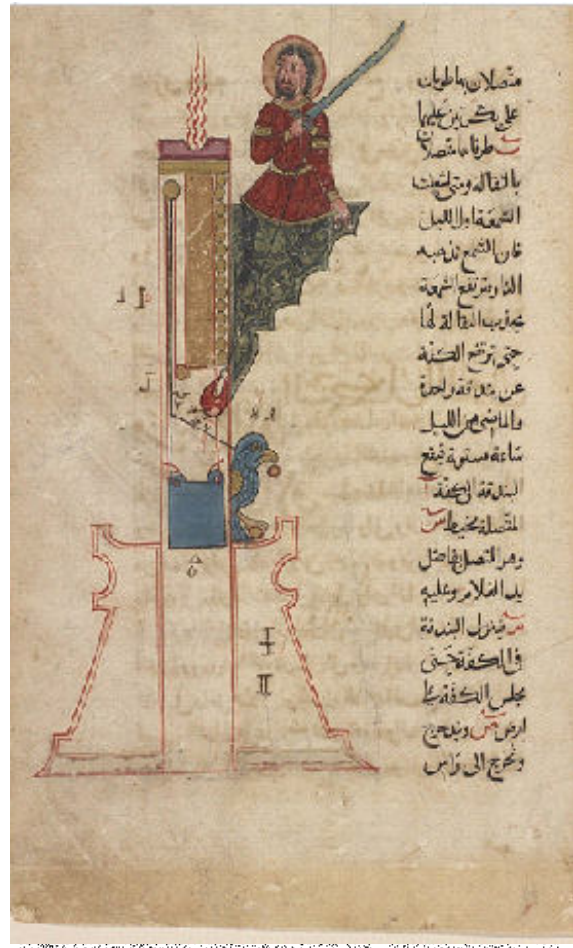 متصلان بها
على بكرتين عليهما
طرفاهما متصلان
بالثقالة ومتى اشعلت
الشمعة اول الليل
فان الشمع تذهبه
النار وترتفع الشمعة
بجذب الثقالة لها
حتى ترتفع الكفة
عن بندقة واحدة
والماضى من الليل
ساعة مستوية فتقع
البندقة الى كفة
المتصلة بخيط س
وهو المتصل بمفاصل
يد الغلام وعليه
س فينزل البندقة
فى الكفة حتى
تجلس الكفة على
ارض وتدحرج
وتخرج الى راس